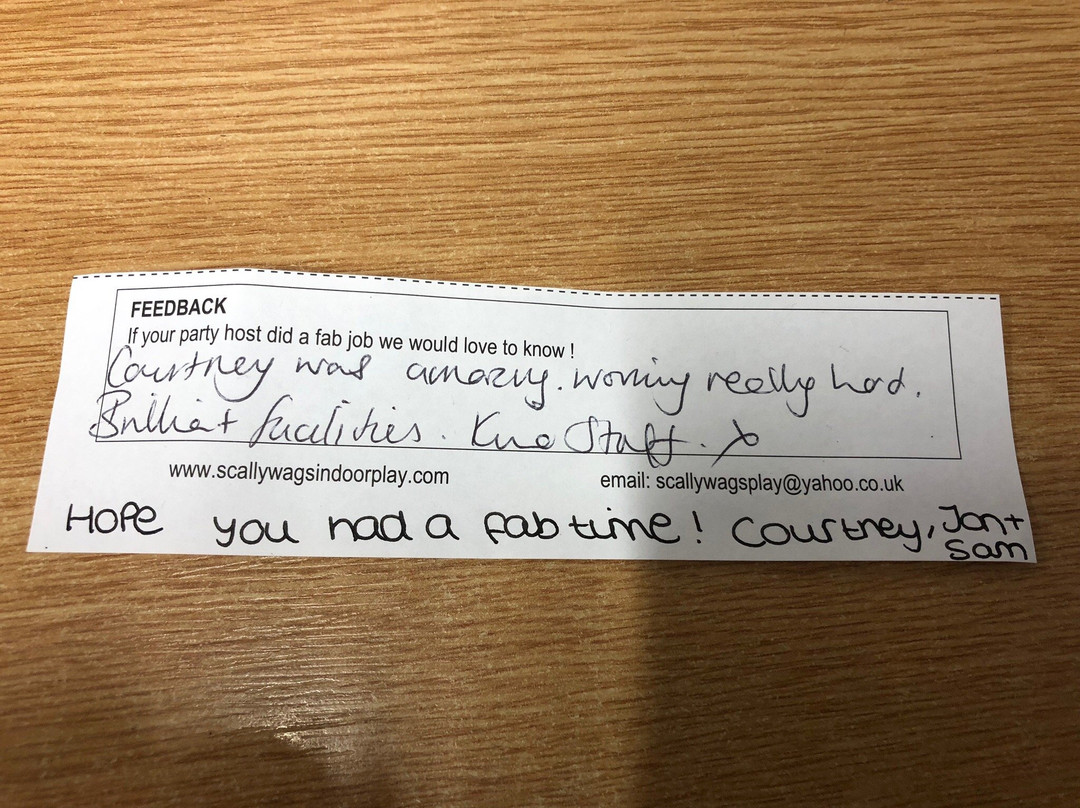 FEEDBACK
If your party host did a fab job we would love to know !
Courtney was amazing. Working really hard.
Brilliant facilities. Kind Staff. x
www.scallywagsindoorplay.com
email: scallywagsplay@yahoo.co.uk
HOPE you had a fab time! Courtney, Jon +
Sam